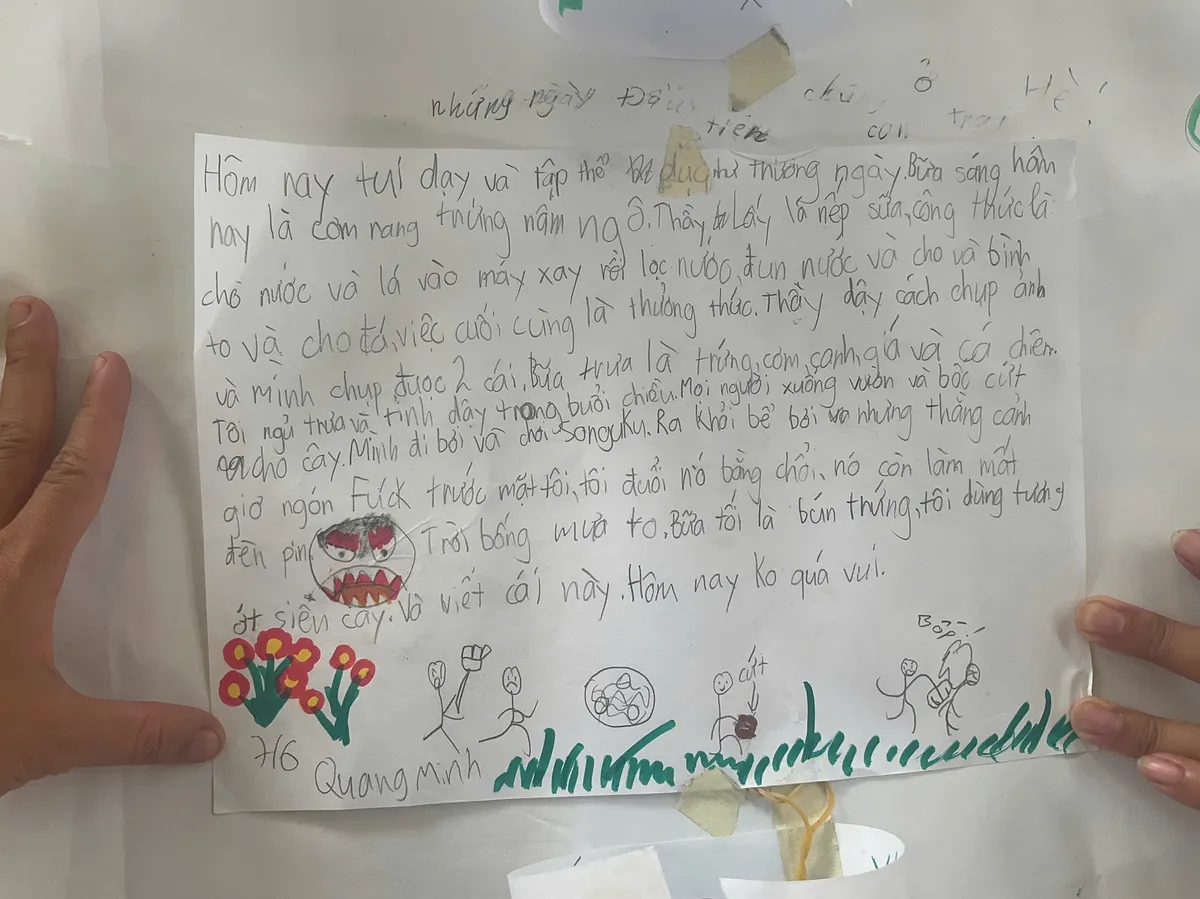 những ngày Đầu tiên chúng con ở trại Hè!
Hôm nay tui dạy và tập thể dục như thường ngày. Bữa sáng hôm
nay là cơm nang trứng nâm ngô. Thầy Lấy lá nếp sữa, công thức là
chó nước và lá vào mấy xay rồi lọc nước, đun nước và cho và bình
to và cho đá, việc cuối cùng là thưởng thức. Thầy dậy cách chụp ảnh
và mình chụp được 2 cái. Bữa trưa là trứng, cơm, canh, giá và cá chiên.
Tôi ngủ trưa và tỉnh dậy trong buổi chiều. Mọi người xuống vườn và bốc cứt
cho cây. Mình đi bơi và chơi Songuku. Ra khỏi bể bơi nhưng thằng cảnh
giơ ngón Fuck trước mặt tôi, tôi đuổi nó bằng chổi, nó còn làm mất
đèn pin. Trời bống mưa to. Bữa tối là bún trứng, tôi dùng tương
ớt siêu cay. Và viết cái này. Hôm nay ko quá vui.
Bốp!
cứt
7/6
Quang Minh